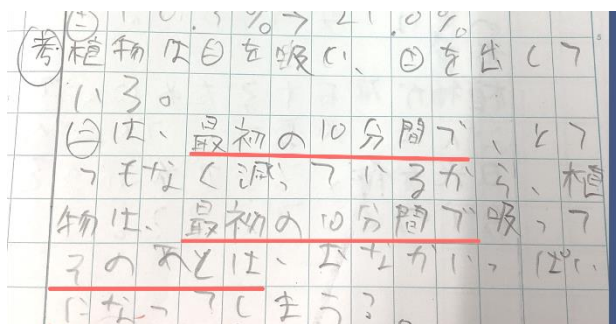 ㊉ 10.3%→21.0%
㋕植物は㊁を吸い、㊉を出して
いる。
㊁は、最初の10分間で、とて
つもなく減っているから、植
物は、最初の10分間で吸って
そのあとは、おなかいっぱい
になってしまう?